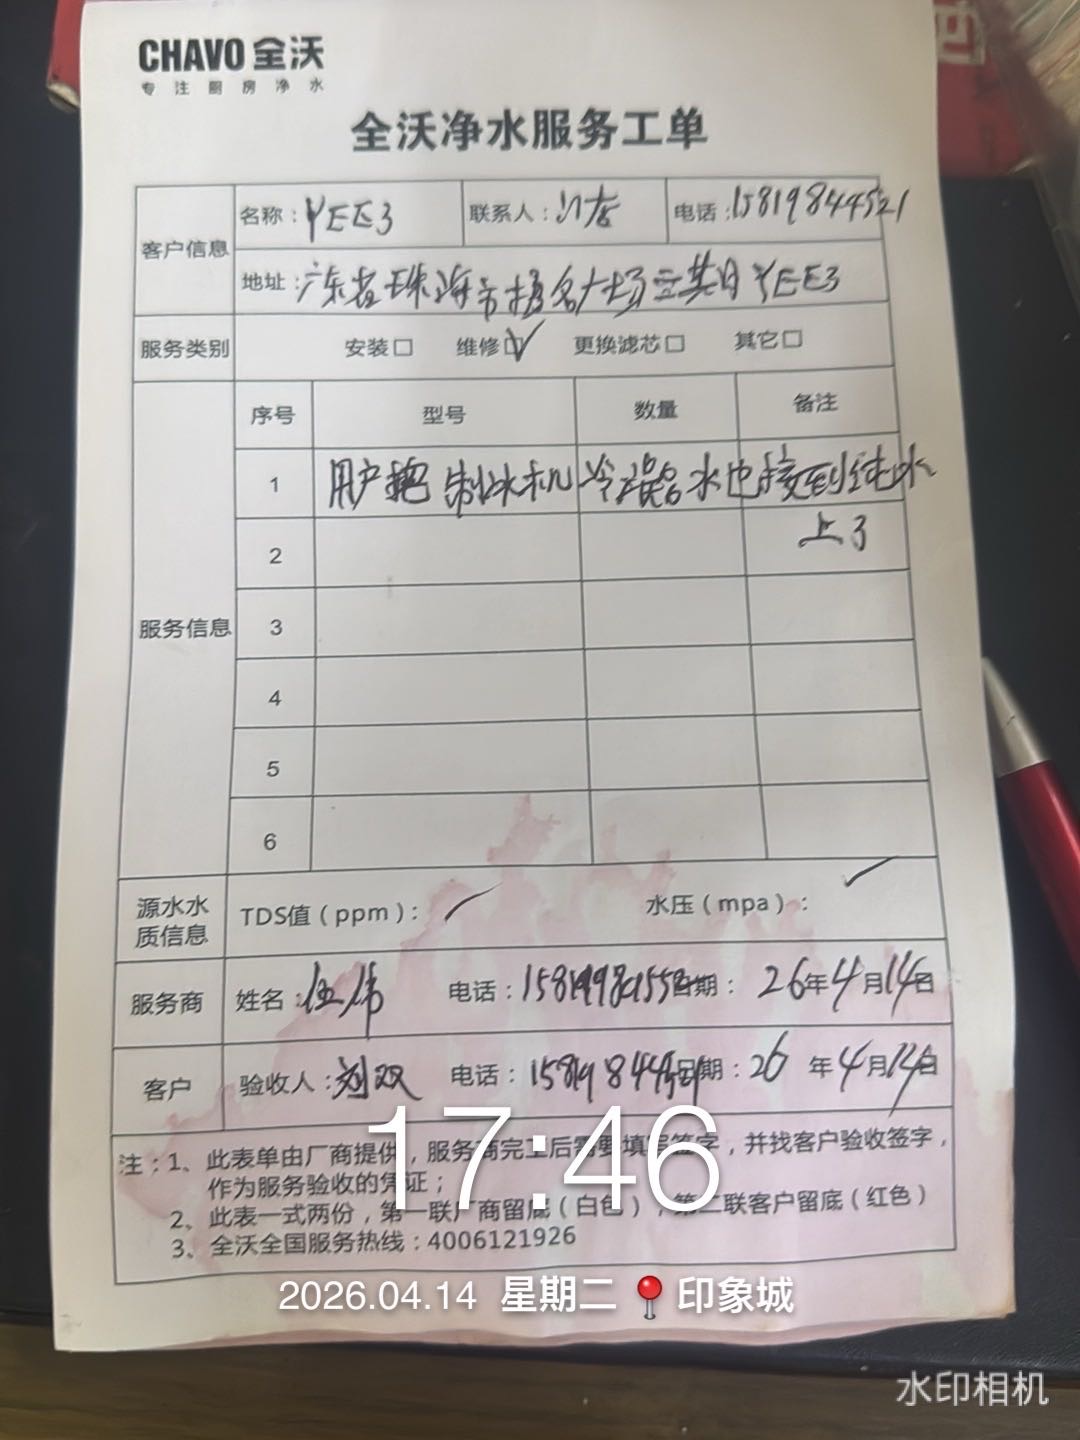 CHAVO 全沃
专注厨房净水
全沃净水服务工单
客户信息 名称：YEE3 联系人： 店 电话：15819844521
地址：广东省珠海市 YEE3
服务类别 安装□ 维修☑ 更换滤芯□ 其它□
服务信息 序号 型号 数量 备注
1 用户把制冰机冷 器水也接到纯水
上了
2
3
4
5
6
源水水质信息 TDS值（ppm）： 水压（mpa）：
服务商 姓名：伍伟 电话： 日期：26年4月14日
客户 验收人：刘双 电话：15819844521 日期：26年4月14日
注：1、此表单由厂商提供，服务商完工后需要填写签字，并找客户验收签字，
作为服务验收的凭证；
2、此表一式两份，第一联厂商留底（白色），第二联客户留底（红色）
3、全沃全国服务热线：4006121926
17:46
2026.04.14 星期二 印象城
水印相机